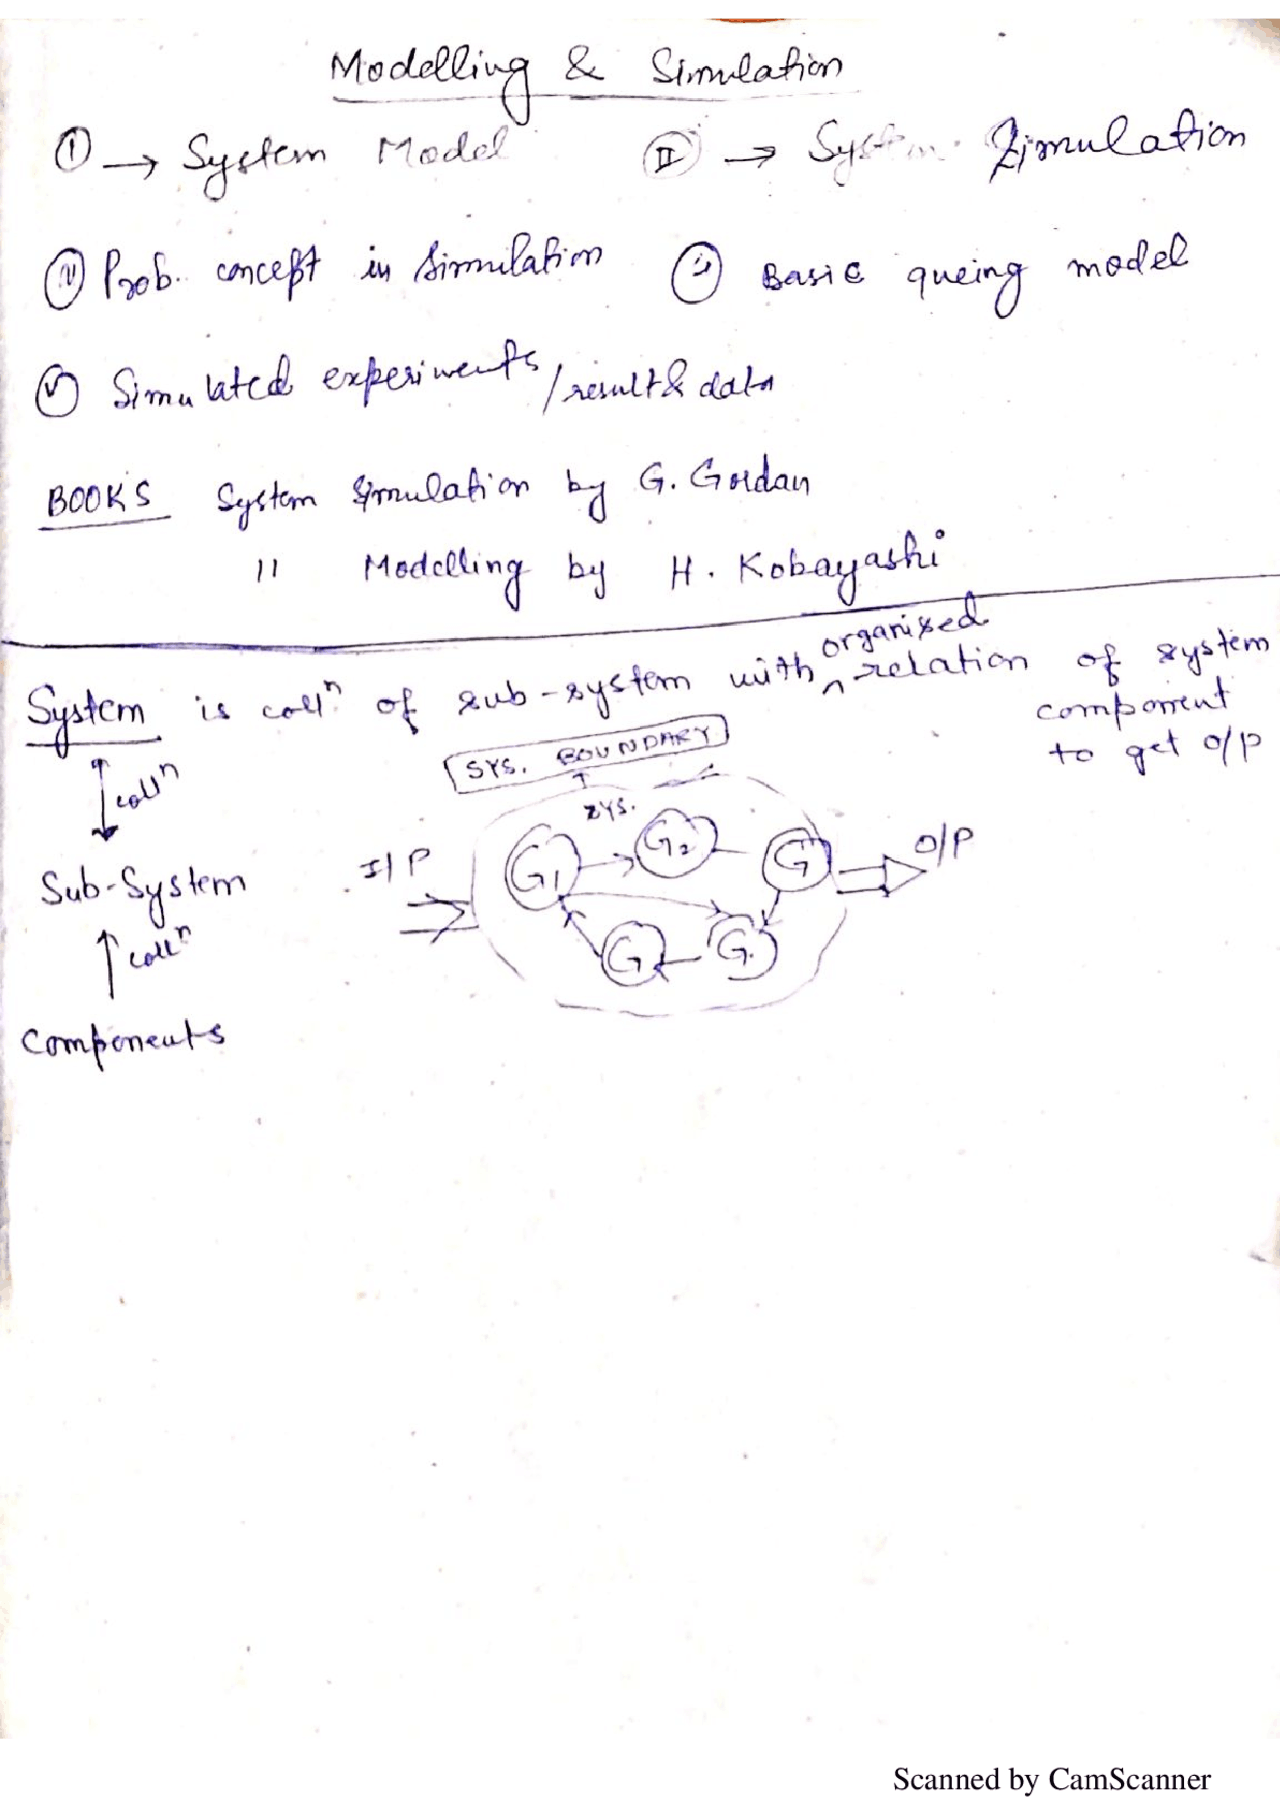 Modelling & Simulation
① → System Model Ⅱ → System Simulation
Prob. concept in simulation Basic queing model
Ⓥ Simulated experiments /result & data
BOOKS System Simulation by G. Gordan
11 Modelling by H. Kobayashi
System is collⁿ of sub-system with ^ organised relation of system
component
to get o/p
SYS. BOUNDARY
collⁿ
sys.
G1 G2 G O/P
I/P
Sub-System
collⁿ
G G
Components
Scanned by CamScanner